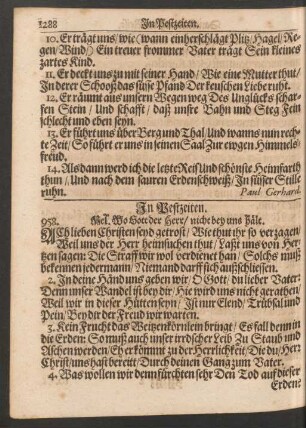 1288 In Pestzeiten.
10. Er trägt uns / wie / wann einherschlägt Plitz / Hagel / Re-
gen / Wind / Ein treuer frommer Vater trägt Sein kleines
zartes Kind.
11. Er deckt uns zu mit seiner Hand / Wie eine Mutter thut /
In derer Schooß das süsse Pfand Der keuschen Liebe ruht.
12. Er räumt aus unsern Wegen weg Des Unglücks schar-
fen Stein / Und schafft / daß unsre Bahn und Steg Fein
schlecht und eben seyn.
13. Er führt uns über Berg und Thal / Und wanns nun rech-
te Zeit / So führt er uns in seinen Saal Zur ewgen Himmels-
freud.
14. Alsdann werd ich die letzte Reis Und schönste Heimfarth
thun / Und nach dem sauren Erdenschweiß / In süsser Stille
ruhn. Paul Gerhard.
In Pestzeiten.
958. Mel. Wo Gott der Herr / nicht bey uns hält.
ACh lieben Christen seyd getrost / Wie thut ihr so verzagen /
Weil uns der Herr heimsuchen thut / Laßt uns von Her-
tzen sagen: Die Straff wir wol verdienet han / Solchs muß
bekennen jedermann / Niemand darff sich ausschliessen.
2. In deine Händ uns geben wir / O Gott / du lieber Vater:
Denn unser Wandel ist bey dir / Hie wird uns nicht gerathen /
Weil wir in dieser Hütten seyn / Ist nur Elend / Trübsal und
Pein / Bey dir der Freud wir warten.
3. Kein Frucht das Weitzenkörnlein bringt / Es fall denn in
die Erden: So muß auch unser irrdscher Leib Zu Staub und
Aschen werden / Eh er kömmt zu der Herrlichkeit / Die du / Herr
Christ / uns hast bereitet / Durch deinen Gang zum Vater.
4. Was wollen wir denn fürchten sehr Den Tod auf dieser
Erden?